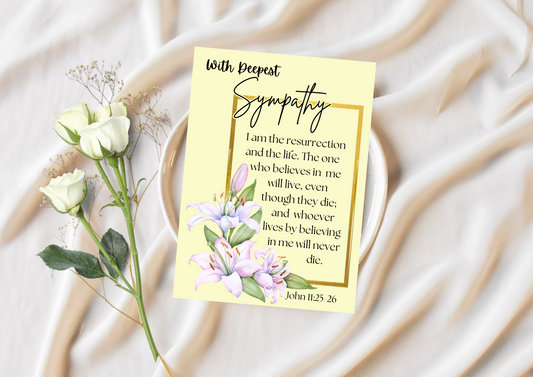 With Deepest
Sympathy
I am the resurrection
and the life. The one
who believes in me
will live, even
though they die;
and whoever
lives by believing
in me will never
die.
John 11:25-26